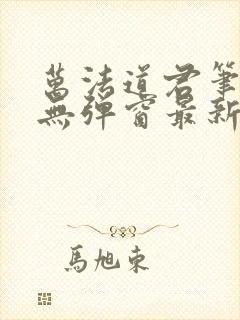 萬法道君筆
無彈窗最新
馬旭東